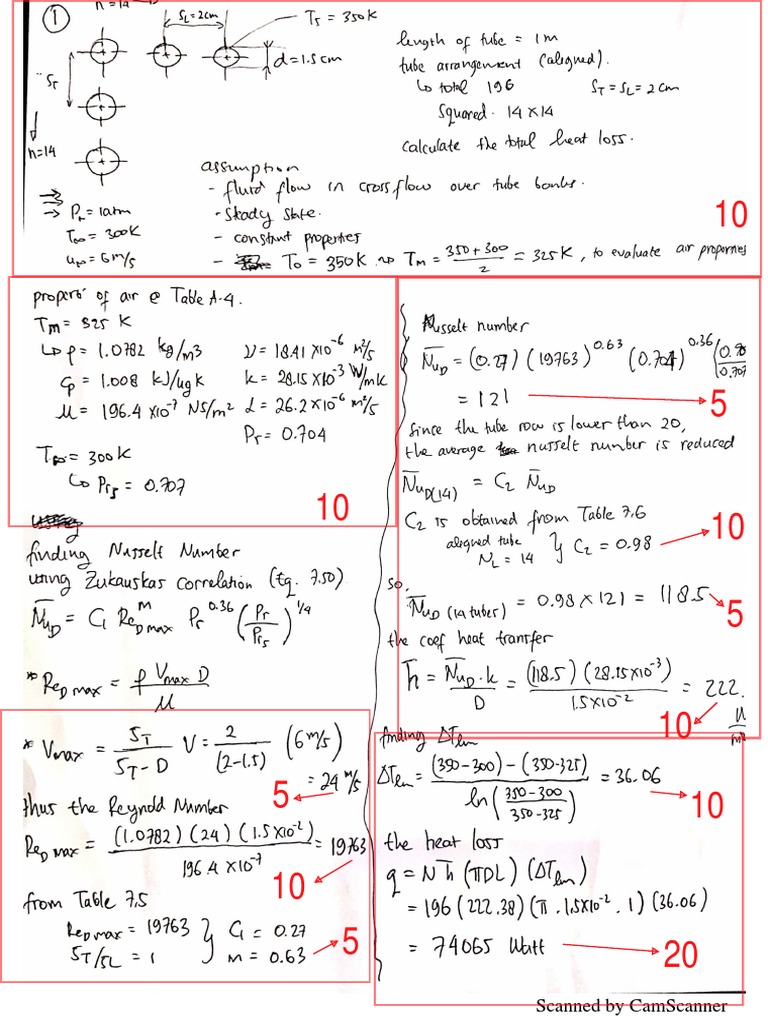 ①
n=14
S_L=2cm
T_s = 350K
d=1.5cm
S_T
n=14
length of tube = 1m
tube arrangement (aligned).
↳ total 196 S_T = S_L = 2cm
squared. 14 x 14
calculate the total heat loss.
assumption
- fluid flow in crossflow over tube banks.
- steady state.
- constant properties
- T_o = 350K → T_m = (350+300)/2 = 325K, to evaluate air properties
P_∞ = 1 atm
T_∞ = 300K
u_∞ = 6 m/s
10
properti of air @ Table A-4.
T_m = 325 K
↳ ρ = 1.0782 kg/m3 ν = 18.41 x10^-6 m²/s
c_p = 1.008 kJ/ugk k = 28.15 x10^-3 W/mk
μ = 196.4 x10^-7 NS/m² α = 26.2 x10^-6 m²/s
Pr = 0.704
T_∞ = 300K
↳ Pr_s = 0.707
10
finding Nusselt Number
using Zukauskas correlation (Eq. 7.50)
N̄u_D = C_1 Re_D max^m Pr^0.36 (Pr/Pr_s)^1/4
* Re_D max = ρ V_max D / μ
* V_max = S_T/(S_T - D) V = 2/(2-1.5) (6 m/s)
= 24 m/s
5
thus the Reynold Number
Re_D max = (1.0782)(24)(1.5x10^-2) / 196.4 x10^-7 = 19763
10
from Table 7.5
Re_D max = 19763 } C_1 = 0.27
S_T/S_L = 1 } m = 0.63
5
Nusselt number
N̄u_D = (0.27) (19763)^0.63 (0.704)^0.36 (0.70/0.707
= 121
5
since the tube row is lower than 20,
the average nusselt number is reduced
N̄u_D(14) = C_2 N̄u_D
C_2 is obtained from Table 7.6
aligned tube
N_L = 14 } C_2 = 0.98
10
so,
N̄u_D (14 tubes) = 0.98 x 121 = 118.5
5
the coef heat transfer
h̄ = N̄u_D . k / D = (118.5)(28.15x10^-3) / 1.5x10^-2 = 222.
10
finding ΔT_lm
ΔT_lm = (350-300) - (350-325) / ln((350-300)/(350-325)) = 36.06
10
the heat loss
q = N h̄ (πDL) (ΔT_lm)
= 196 (222.38) (π . 1.5x10^-2 . 1) (36.06)
= 74065 Watt
20
Scanned by CamScanner